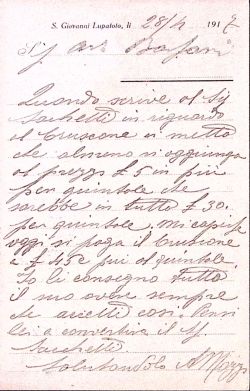 S. Giovanni Lupatoto, li 28/4 1917
Quando scrive al Sig
Sachetti in riguardo
al Cruscone si metta
che almeno si aggiunga
al prezzo £ 5 in più
per quintale che
sarebbe in tutto £ 30.
per quintale. Mi capisce
oggi si paga il Cruscone
a £ 45 qui al quintale.
Io li consegno tutto
il suo avere sempre
che accetti così. Pensi
lei a convertire il Sg
Sacchetti
Salutandolo A